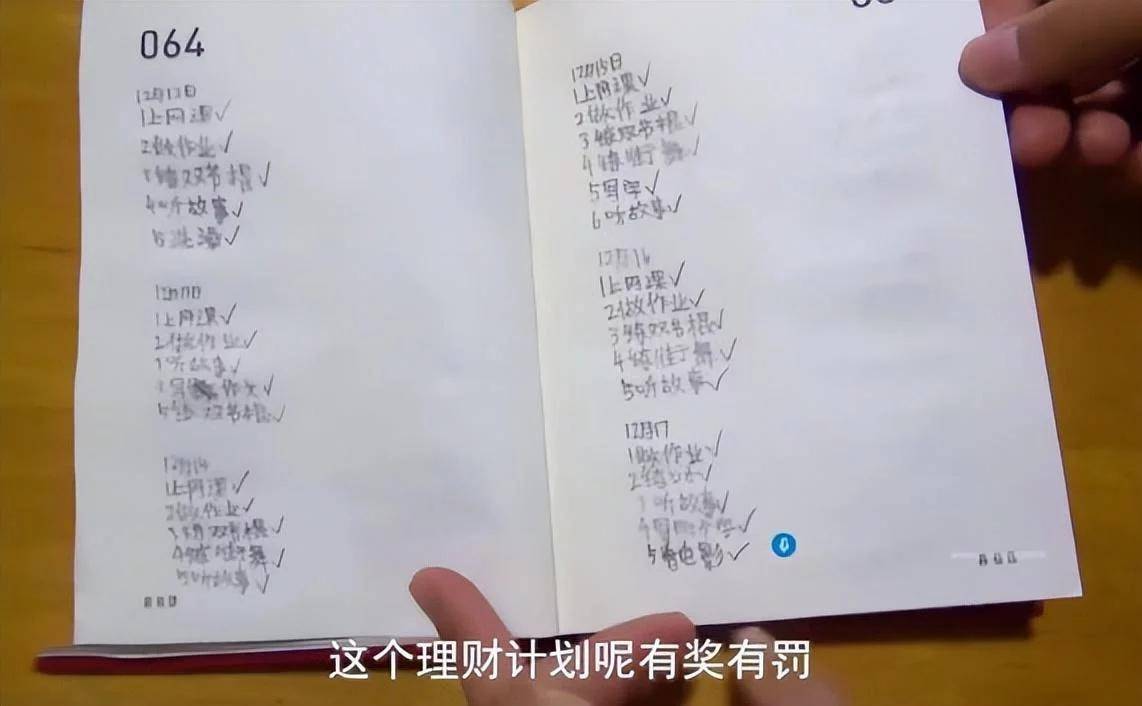 064
12月12日
1上网课✓
2做作业✓
3练双节棍✓
4听故事✓
5洗澡✓
1上网课✓
2做作业✓
3听故事✓
作文✓
5练双节棍✓
12月14
1上网课✓
2做作业✓
3练双节棍✓
4练街舞✓
5听故事✓
12月15日
1上网课✓
2做作业✓
3练双节棍✓
4练街舞✓
5写字✓
6听故事✓
12月16
1上网课✓
2做作业✓
3练双节棍✓
4练街舞✓
5听故事✓
12月17
1做作业✓
3听故事✓
5看电影✓
这个理财计划呢有奖有罚